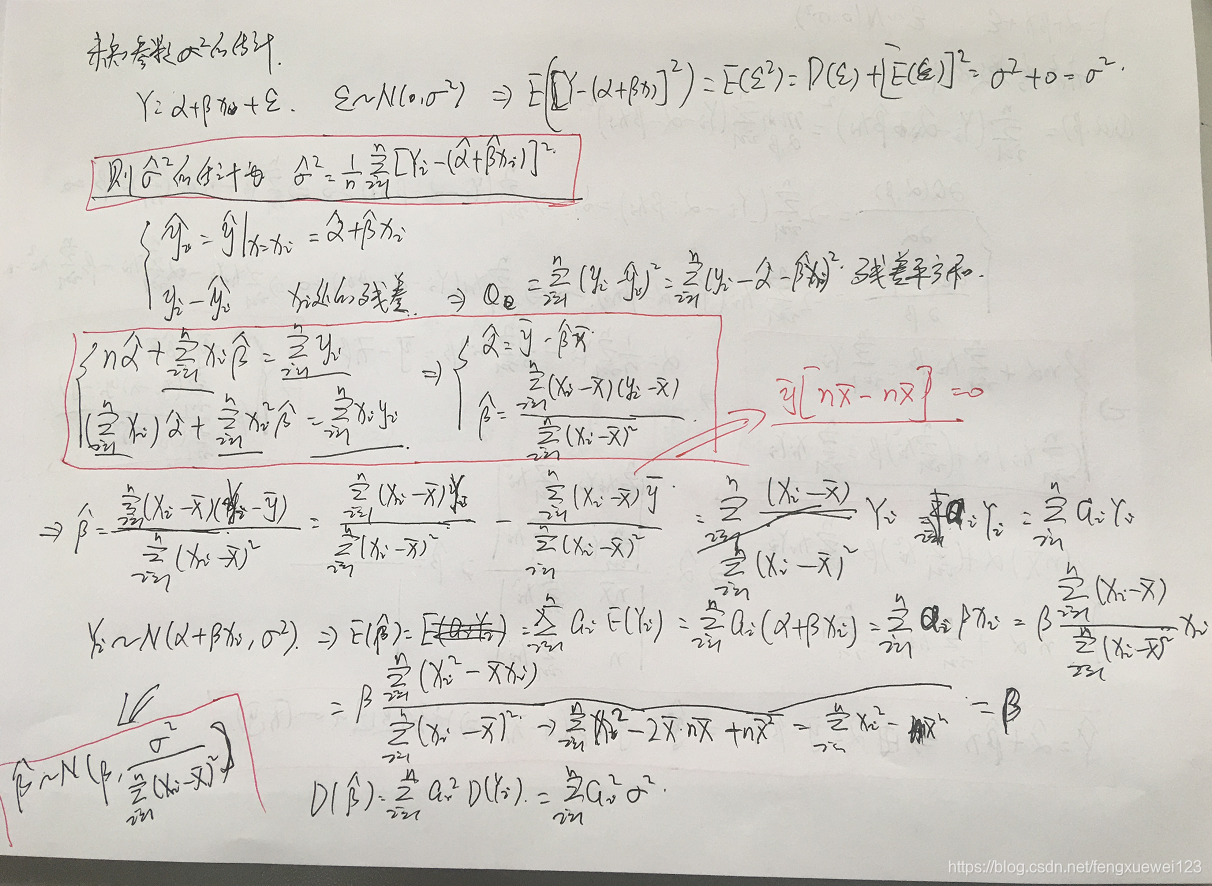 未知参数σ²的估计.
Y=α+βx+ε. ε~N(0,σ²) ⇒ E([Y-(α+βx)]²)=E(ε²)=D(ε)+[E(ε)]²=σ²+0=σ².
则σ̂²的估计为 σ̂²=1/n Σ_{i=1}^n [Yi-(α̂+β̂xi)]².
{ ŷi=ŷ|x=xi=α̂+β̂xi
yi-ŷi xi处的残差. ⇒ Qe=Σ_{i=1}^n (yi-ŷi)²=Σ_{i=1}^n (yi-α̂-β̂xi)². 残差平方和.
{ nα̂+Σ_{i=1}^n xi β̂=Σ_{i=1}^n yi ⇒ { α̂=ȳ-β̂x̄
(Σ_{i=1}^n xi)α̂+Σ_{i=1}^n xi² β̂=Σ_{i=1}^n xiyi β̂=Σ_{i=1}^n (xi-x̄)(yi-x̄) / Σ_{i=1}^n (xi-x̄)²
ȳ[nx̄-nx̄]=0
⇒ β̂=Σ_{i=1}^n (xi-x̄)(Yi-ȳ) / Σ_{i=1}^n (xi-x̄)² = Σ_{i=1}^n (xi-x̄)Yi / Σ_{i=1}^n (xi-x̄)² - Σ_{i=1}^n (xi-x̄)ȳ / Σ_{i=1}^n (xi-x̄)² = Σ_{i=1}^n (xi-x̄) / Σ_{i=1}^n (xi-x̄)² Yi aiYi = Σ_{i=1}^n aiYi
Yi~N(α+βxi,σ²). ⇒ E(β̂)=E(aiYi)=Σ_{i=1}^n ai E(Yi)=Σ_{i=1}^n ai(α+βxi)=Σ_{i=1}^n ai βxi=β Σ_{i=1}^n (xi-x̄) / Σ_{i=1}^n (xi-x̄)² xi
=β Σ_{i=1}^n (xi²-x̄xi) / Σ_{i=1}^n (xi-x̄)² → Σ_{i=1}^n xi²-2x̄·nx̄+nx̄²=Σ_{i=1}^n xi²-nx̄² =β
β̂~N(β, σ² / Σ_{i=1}^n (xi-x̄)²)
D(β̂)=Σ_{i=1}^n ai² D(Yi).=Σ_{i=1}^n ai²σ².
https://blog.csdn.net/fengxuewei123